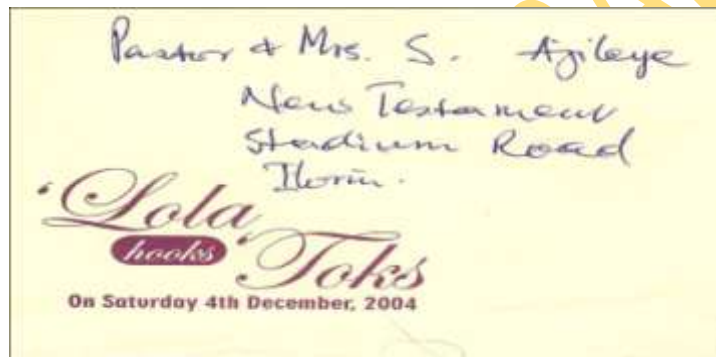 Pastor & Mrs. S. Ajileye
New Testament
Stadium Road
Ilorin.
'Lola
hooks
'Toks
On Saturday 4th December, 2004